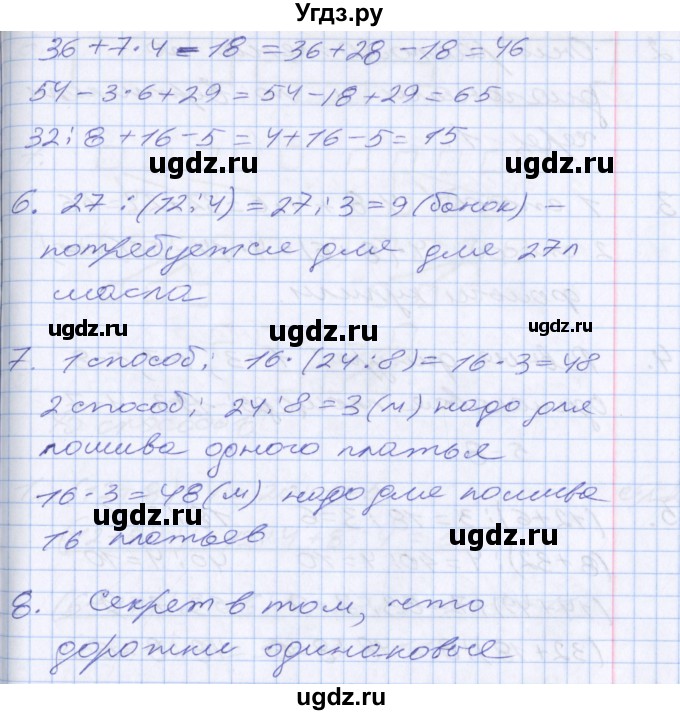 Угдз.ру
36 + 7 · 4 - 18 = 36 + 28 - 18 = 46
54 - 3 · 6 + 29 = 54 - 18 + 29 = 65
32 : 8 + 16 - 5 = 4 + 16 - 5 = 15
ugdz.ru ugdz.ru
6. 27 : (12 : 4) = 27 : 3 = 9 (банок) -
потребуется для для 27 л
масла
ugdz.ru ugdz.ru ugdz.ru
7. 1 способ: 16 · (24 : 8) = 16 · 3 = 48
2 способ: 24 : 8 = 3 (м) надо для
пошива одного платья
ugdz.ru ugdz.ru
16 · 3 = 48 (м) надо для пошива
16 платьев
ugdz.ru ugdz.ru
8. Секрет в том, что
дорожки одинаковые
ugdz.ru ugdz.ru
ugdz.ru